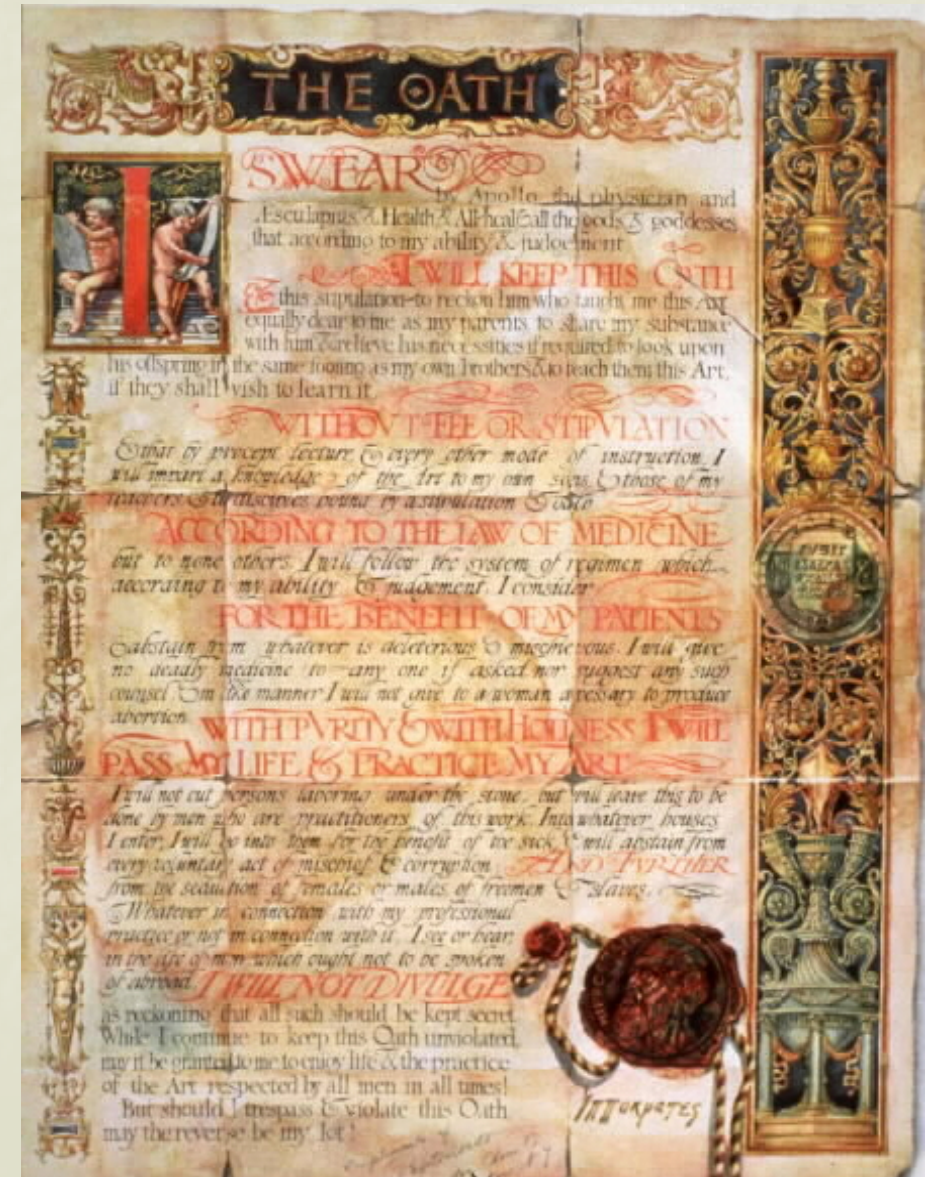 THE OATH
I SWEAR
by Apollo, the physician and
Æsculapius, & Health & All-heal & all the gods & goddesses
that according to my ability & judgement
I WILL KEEP THIS OATH
& this stipulation-to reckon him who taught me this Art
equally dear to me as my parents, to share my substance
with him & relieve his necessities if required to look upon
his offspring in the same footing as my own brothers & to teach them this Art,
if they shall wish to learn it
WITHOVT FEE OR STIPVLATION
& that by precept, lecture & every other mode of instruction, I
will impart a knowledge of the Art to my own sons, & those of my
teachers, & to disciples bound by a stipulation & oath
ACCORDING TO THE LAW OF MEDICINE
but to none others. I will follow the system of regimen which
according to my ability & judgement I consider
FOR THE BENEFIT OF MY PATIENTS
& abstain from whatever is deleterious & mischievous. I will give
no deadly medicine to any one if asked nor suggest any such
counsel & in like manner I will not give to a woman a pessary to produce
abortion.
WITH PVRITY & WITH HOLINESS I WILL
PASS MY LIFE & PRACTICE MY ART
I will not cut persons laboring under the stone, but will leave this to be
done by men who are practitioners of this work. Into whatever houses
I enter, I will go into them for the benefit of the sick & will abstain from
every voluntary act of mischief & corruption AND FVRTHER
from the seduction of females or males, of freemen & slaves.
Whatever in connection with my professional
practice or not in connection with it, I see or hear,
in the life of men which ought not to be spoken
of abroad I WILL NOT DIVULGE
as reckoning that all such should be kept secret.
While I continue to keep this Oath unviolated,
may it be granted to me to enjoy life & the practice
of the Art respected by all men in all times!
But should I trespass & violate this Oath
may the reverse be my lot!